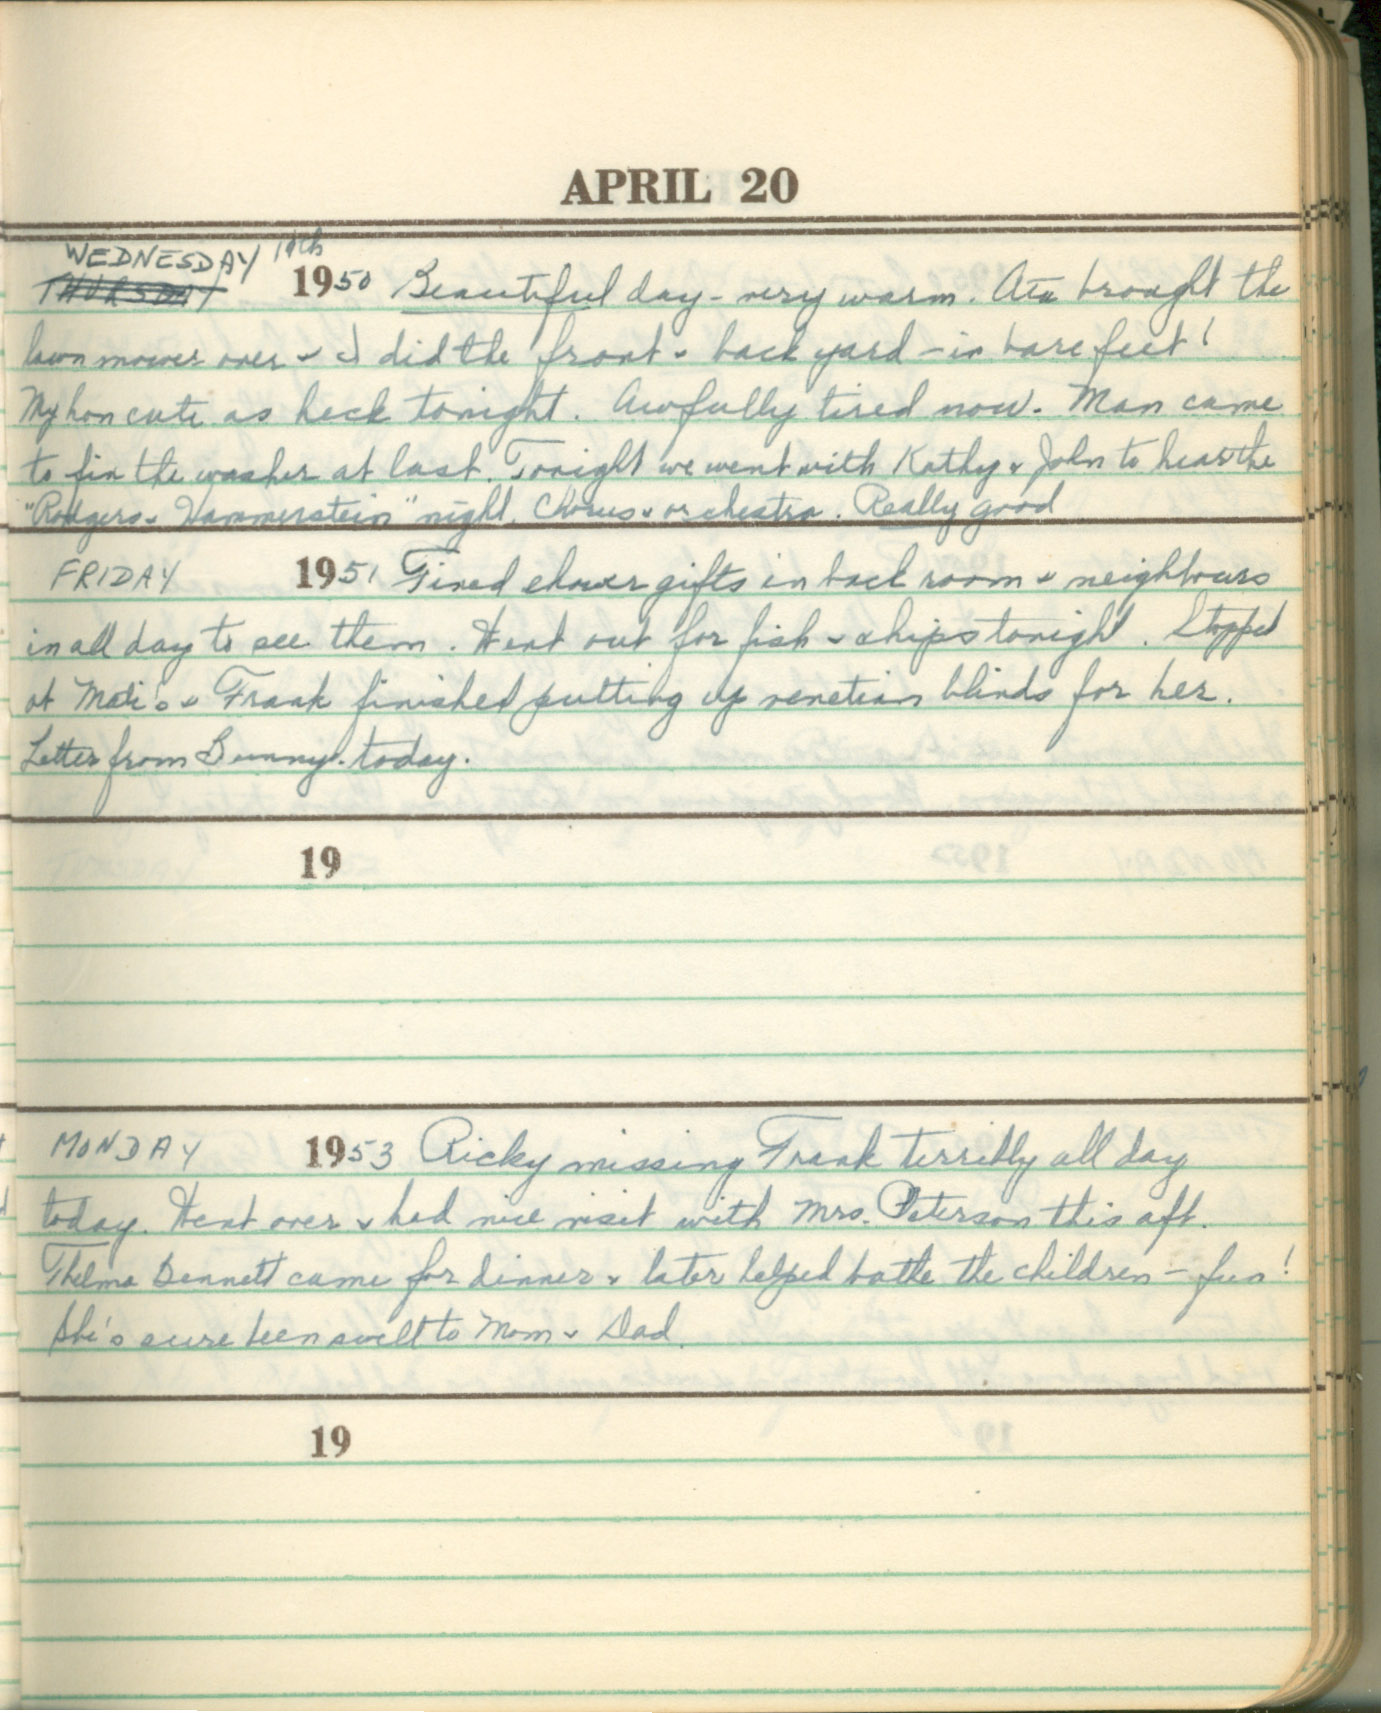 APRIL 20
WEDNESDAY 19th
THURSDAY 1950 Beautiful day - very warm. brought the
lawn mower over & I did the front & back yard - in bare feet!
My hon cute as heck tonight. Awfully tired now. Man came
to fix the washer at last. Tonight we went with Kathy & John to hear the
"Rodgers & Hammerstein" night. Chorus & orchestra. Really good
FRIDAY 1951 Fixed shower gifts in back room & neighbours
in all day to see them. Went out for fish & chips tonight. Stopped
at & Frank finished putting up venetian blinds for her.
Letter from Bunny today.
19
MONDAY 1953 Ricky missing Frank terribly all day
today. Went over & had nice visit with Mrs. Peterson this aft.
Thelma Bennett came for dinner & later helped bathe the children - fun!
She's sure been swell to Mom & Dad.
19